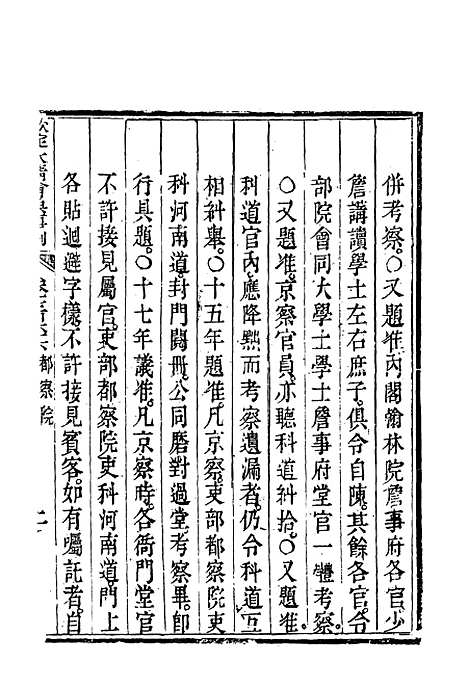 併考察○又題准內閣翰林院詹事府各官少
詹講讀學士左右庶子俱令自陳其餘各官令
部院會同大學士學士詹事府堂官一體考察
○又題准京察官員亦聽科道糾拾○又題准
科道官內應降黜而考察遺漏者仍令科道互
相糾舉○十五年題准凡京察吏部都察院吏
科河南道封門閱冊公同磨對過堂考察畢卽
行具題○十七年議准凡京察時各衙門堂官
不許接見屬官吏部都察院吏科河南道門上
各貼迴避字樣不許接見賓客如有囑託者自
欽定大清會典事例
都察院